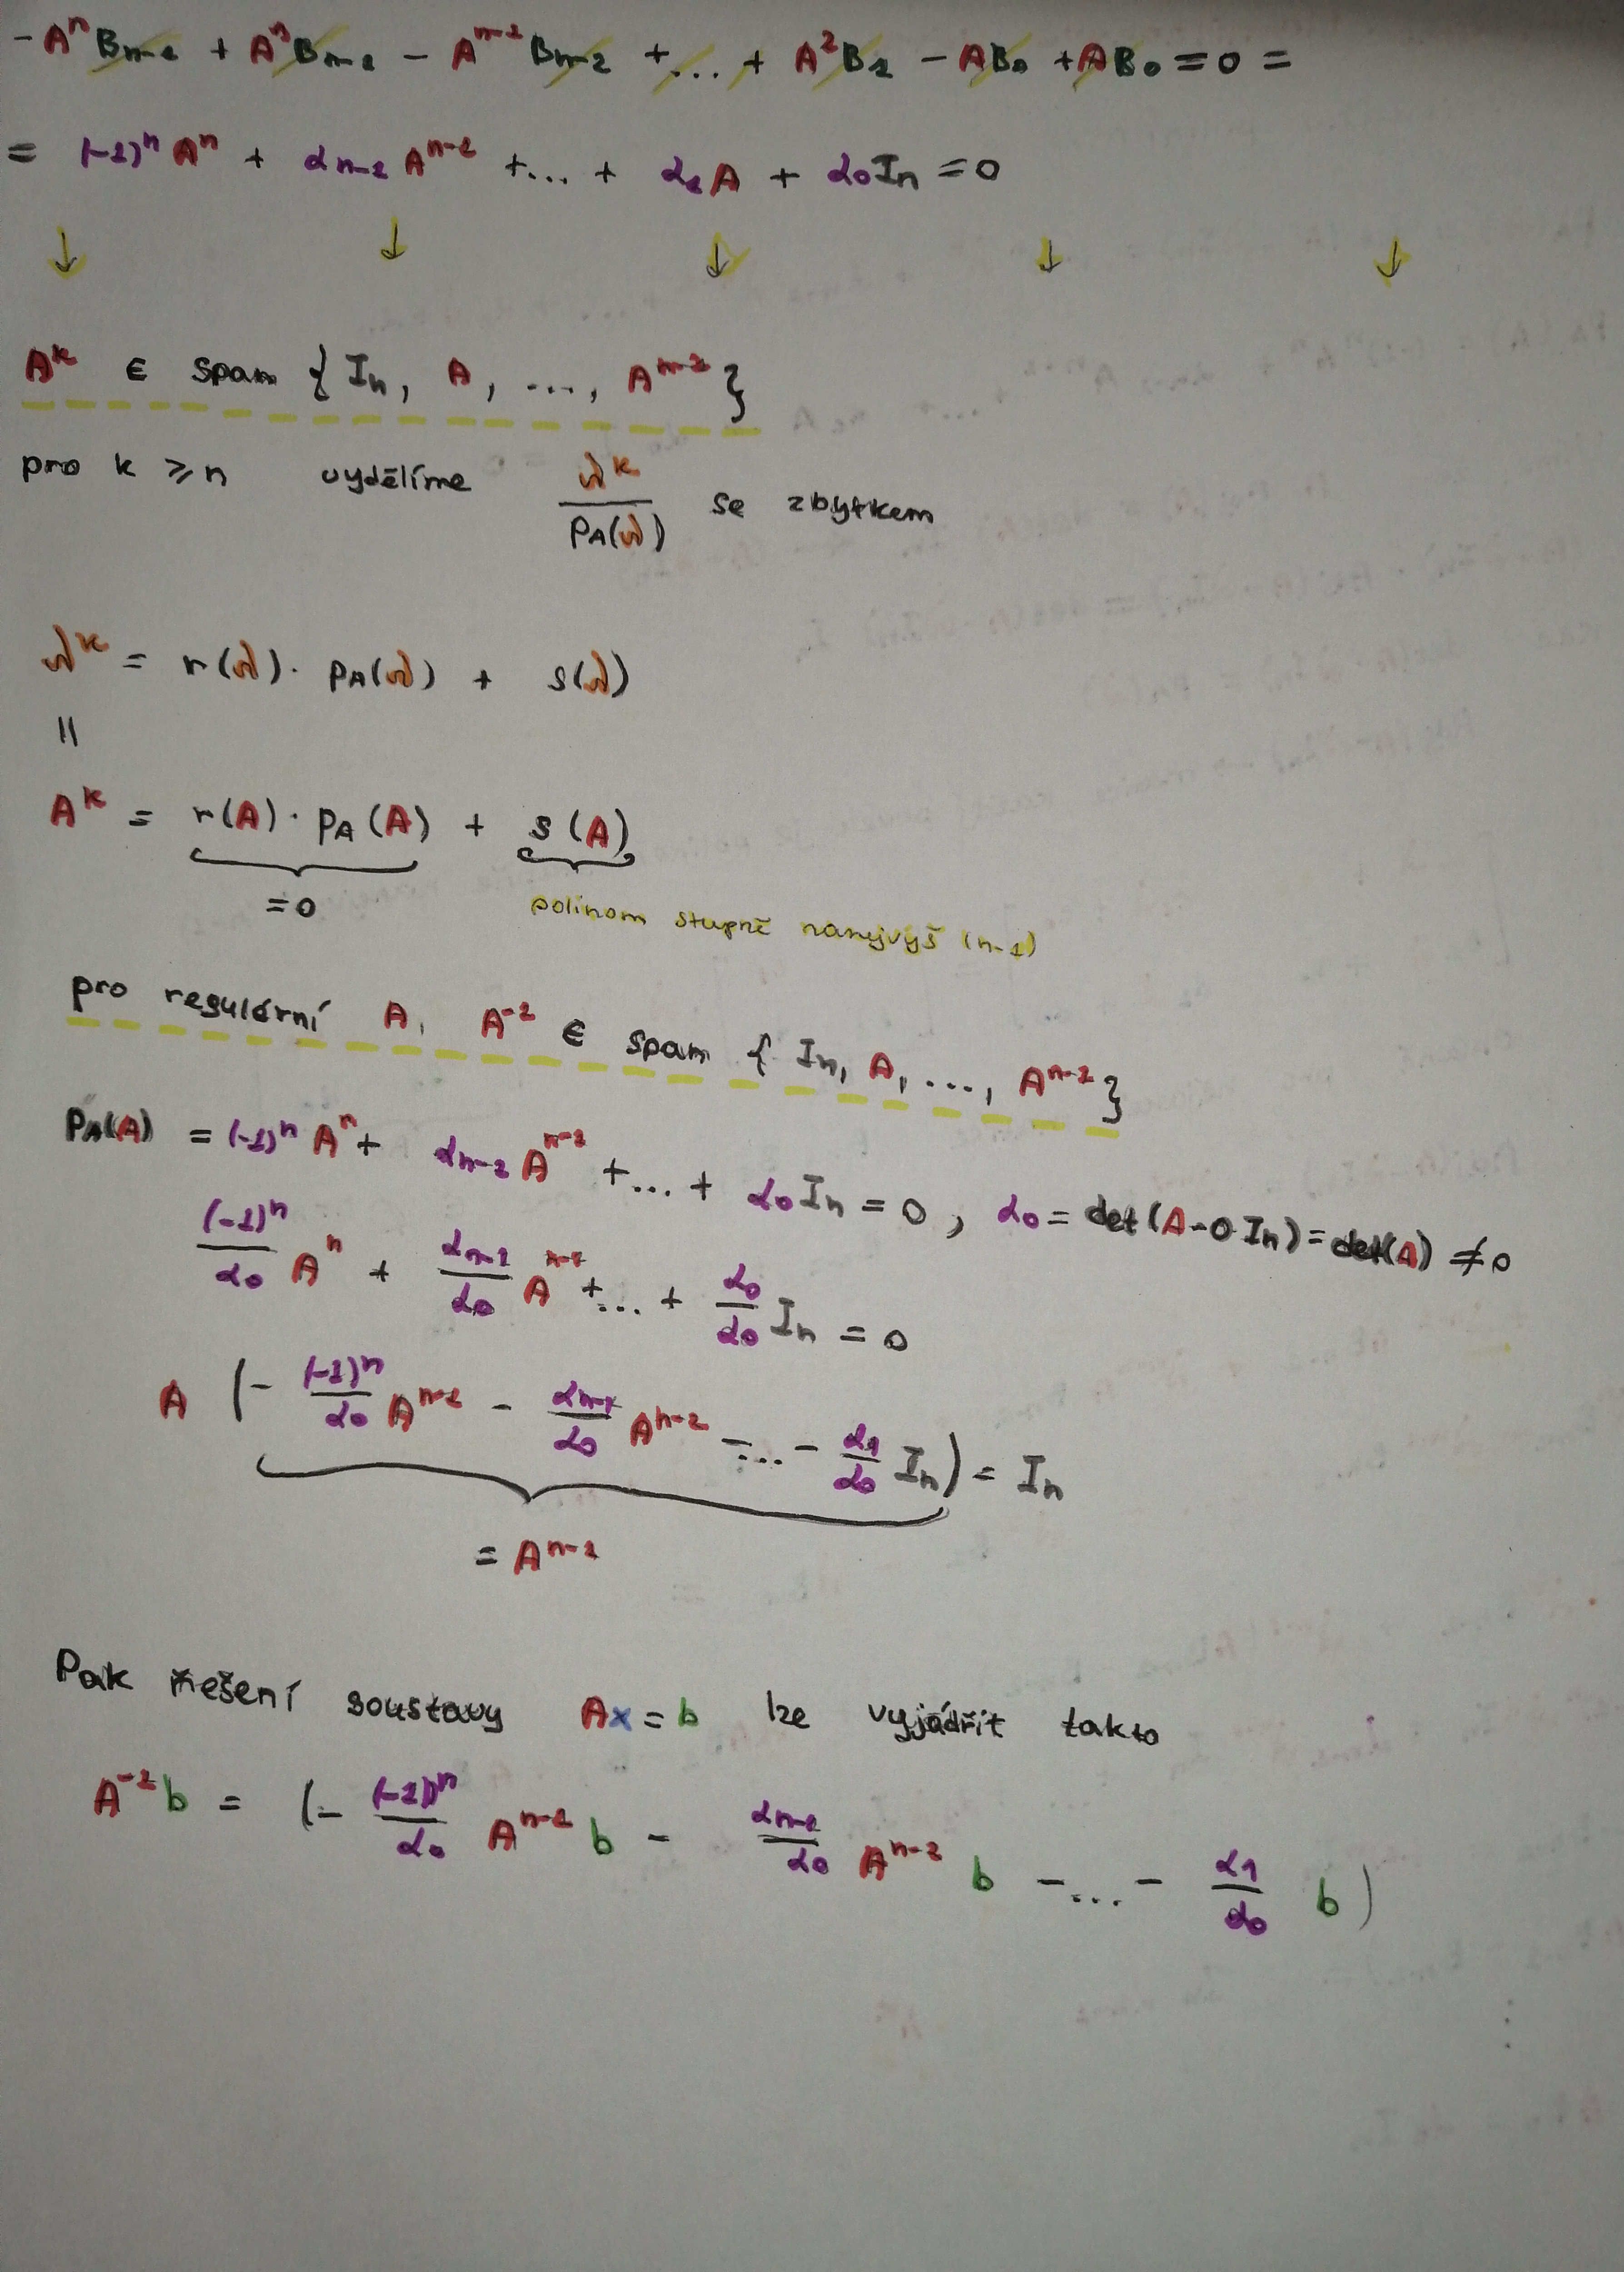 -AⁿBₙ₋₁ + AⁿBₙ₋₁ - Aⁿ⁻¹Bₙ₋₂ + ... + A²B₁ - AB₀ + AB₀ = 0 =
= (-1)ⁿAⁿ + αₙ₋₁Aⁿ⁻¹ + ... + α₁A + α₀Iₙ = 0
↓ ↓ ↓ ↓ ↓
Aᵏ ∈ spam {Iₙ, A, ..., Aⁿ⁻¹}
pro k ≥ n vydělíme λᵏ / pA(λ) se zbytkem
λᵏ = r(λ) · pA(λ) + s(λ)
||
Aᵏ = r(A) · pA(A) + s(A)
= 0 polinom stupně nanejvýš (n-1)
pro regulární A, A⁻¹ ∈ spam {Iₙ, A, ..., Aⁿ⁻¹}
PA(A) = (-1)ⁿAⁿ + αₙ₋₁Aⁿ⁻¹ + ... + α₀Iₙ = 0, α₀ = det(A-0Iₙ) = det(A) ≠ 0
(-1)ⁿ/α₀ Aⁿ + αₙ₋₁/α₀ Aⁿ⁻¹ + ... + α₀/α₀ Iₙ = 0
A (- (-1)ⁿ/α₀ Aⁿ⁻¹ - αₙ₋₁/α₀ Aⁿ⁻² - ... - α₁/α₀ Iₙ) = Iₙ
= Aⁿ⁻¹
Pak řešení soustavy Ax = b lze vyjádřit takto
A⁻¹b = (- (-1)ⁿ/α₀ Aⁿ⁻¹ b - αₙ₋₁/α₀ Aⁿ⁻² b - ... - α₁/α₀ b)